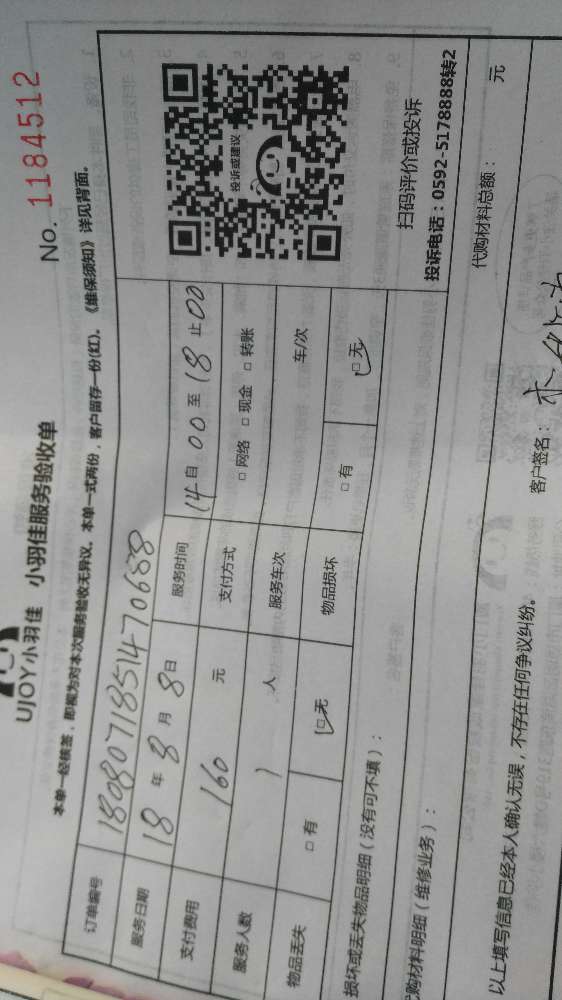 UJOY小羽佳 小羽佳服务验收单
No. 1184512
本单一经核签，即视为对本次服务验收无异议。本单一式两份，客户留存一份(红)。《维保须知》详见背面。
订单编号 180807185147068８
服务日期 18 年 8 月 8 日 服务时间 14 自 00 至 18 止 00
支付费用 160 元 支付方式 □ 网络 □ 现金 □ 转账
服务人数 1 人 服务车次 车/次
物品丢失 □ 有 □ 无 物品损坏 □ 有 □ 无
投诉或建议
扫码评价或投诉
投诉电话：0592-5178888转2
损坏或丢失物品明细（没有可不填）：
购材料明细（维修业务）： 代购材料总额： 元
以上填写信息已经本人确认无误，不存在任何争议纠纷。 客户签名：